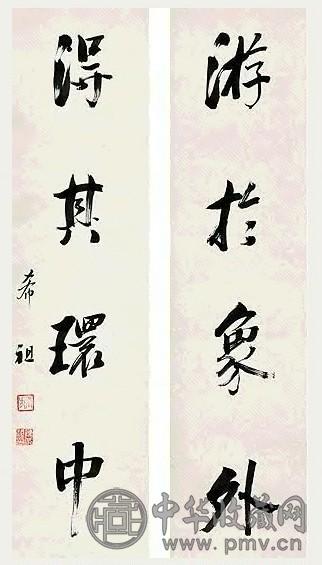 游於象外
得其環中
希祖
中华收藏网
www.pmv.cn